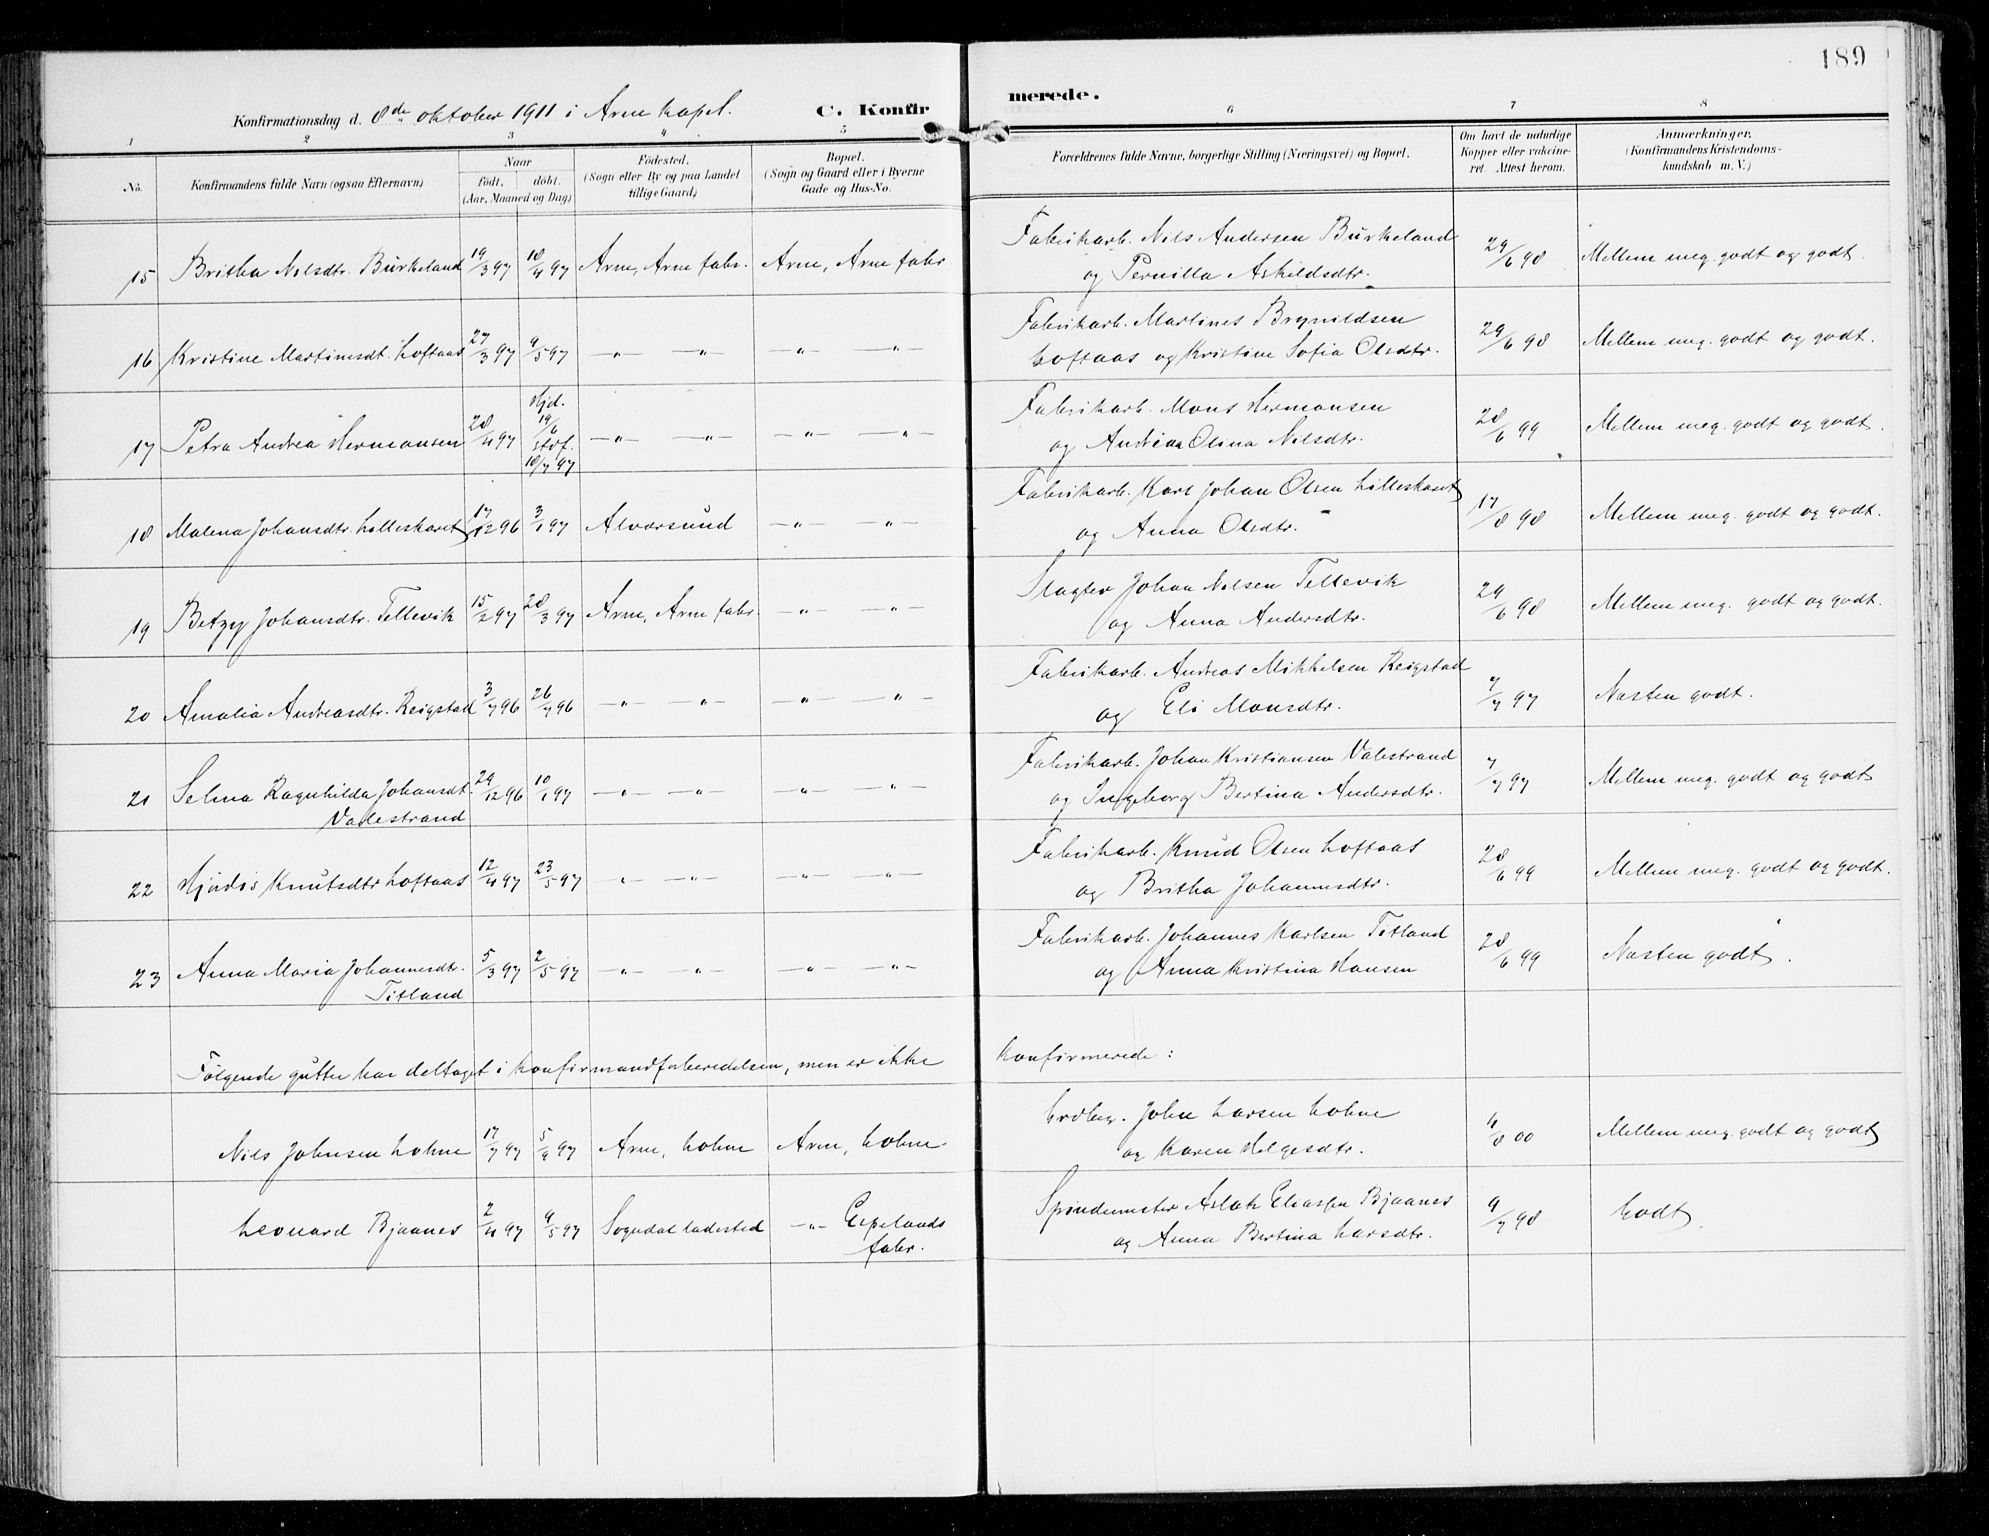 189
Konfirmationsdag d. 8de oktober 1911 i Arne kapel. C. Konfirmerede.
1 2 3 4 5 6 7 8
No. Konfirmandens fulde Navn (ogsaa Efternavn) Naar født. døbt. (Aar, Maaned og Dag) Fødested. (Sogn eller By og paa Landet tillige Gaard) Bopæl. (Sogn og Gaard eller i Byerne Gade og Hus-No. Forældrenes fulde Navne, borgerlige Stilling (Næringsvei) og Bopæl. Om havt de naturlige Kopper eller vaccineret. Attest herom. Anmærkninger. (Konfirmandens Kristendomskundskab m. V.)
15 Britha Nilsdtr. Burkeland 19/3 97 18/4 97 Arne, Arne fabr. Arne, Arne fabr. Fabrikarb. Nils Andersen Burkeland og Pernilla Askildsdtr. 29/6 98 Mellem meg. godt og godt.
16 Kristine Martinsdt. Loftaas 27/3 97 9/5 97 —"— —"— —"— —"— Fabrikarb. Martines Brynildsen Loftaas og Kristine Sofia Olsdtr. 29/6 98 Mellem meg. godt og godt.
17 Petra Andrea Hermansen 28/4 97 Hjd. 19/6 stdf. 18/7 97 —"— —"— —"— —"— Fabrikarb. Mons Hermansen og Andrina Olina Nilsdtr. 28/6 99 Mellem meg. godt og godt.
18 Malena Johansdtr. Lilleskaret 17/12 96 3/1 97 Alversund —"— —"— Fabrikarb. Karl Johan Olsen Lilleskaret og Anna Olsdtr. 17/8 98 Mellem meg. godt og godt.
19 Betzy Johansdtr. Tellevik 15/2 97 28/3 97 Arne, Arne fabr. —"— —"— Slagter Johan Nilsen Tellevik og Anna Andersdtr. 29/6 98 Mellem meg. godt og godt.
20 Amalia Andreasdtr. Reigstad 3/7 96 26/7 96 —"— —"— —"— —"— Fabrikarb. Andreas Mikkelsen Reigstad og Eli Monsdtr. 7/7 97 Næsten godt.
21 Selma Ragnhilda Johansdt. Valestrand 29/12 96 10/1 97 —"— —"— —"— —"— Fabrikarb. Johan Kristiansen Valestrand og Ingeborg Bertina Andersdtr. 7/7 97 Mellem meg. godt og godt
22 Hjørdis Knutsdtr Loftaas 12/4 97 23/5 97 —"— —"— —"— —"— Fabrikarb. Knud Olsen Loftaas og Britha Johannesdtr. 28/6 99 Mellem meg. godt og godt.
23 Anna Maria Johannesdtr. Titland 5/3 97 2/5 97 —"— —"— —"— —"— Fabrikarb. Johannes Karlsen Titland og Anna Kristina Hansen 28/6 99 Næsten godt.
Følgende gutter har deltaget i konfirmandforberedelsen, men er ikke konfirmerede:
Nils Johnsen Lohne 17/7 97 5/9 97 Arne, Lohne Arne, Lohne Grdbr. John Larsen Lohne og Karen Helgesdtr. 4/8 00 Mellem meg. godt og godt
Leonard Bjaanes 2/4 97 9/5 97 Sogndal ladested —"— Espelands fabr. Spindemester Aslak Eliassen Bjaanes og Anna Bertina Larsdtr. 9/7 98 Godt.